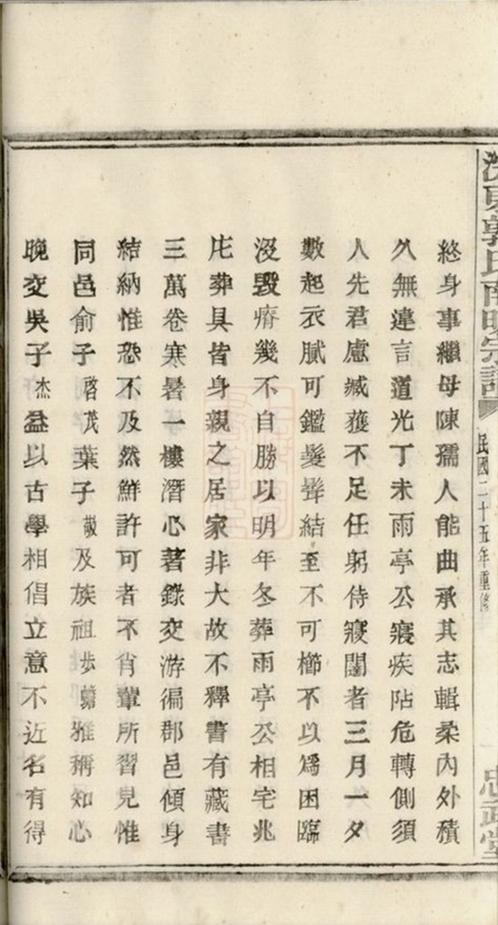 終身事繼母陳孺人能曲承其志輯柔內外積
久無違言道光丁未雨亭公寢疾阽危轉側須
人先君慮臧獲不足任躬侍寢闥者三月一夕
數起衣膩可鑑髮髼結至不可櫛不以爲困臨
沒毀瘠幾不自勝以明年冬葬雨亭公相宅兆
庀葬具皆身親之居家非大故不釋書有藏書
三萬卷寒暑一樓潛心著錄交游徧郡邑傾身
結納惟恐不及然鮮許可者不肖輩所習見惟
同邑俞子啓茂葉子及族祖步雅稱知心
晚交吳子杰益以古學相倡立意不近名有得
郭氏南明宗譜
民國二十五年重修
忠武堂